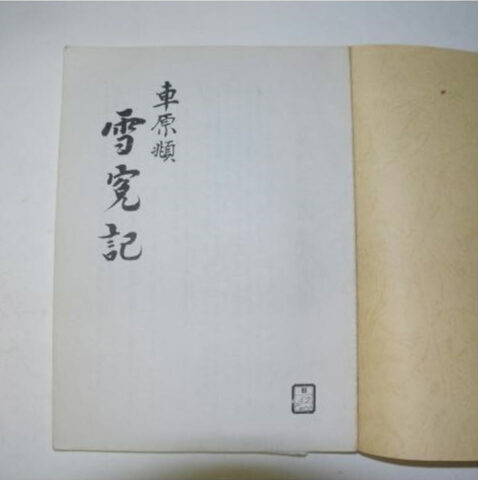 車原頫
雪寃記